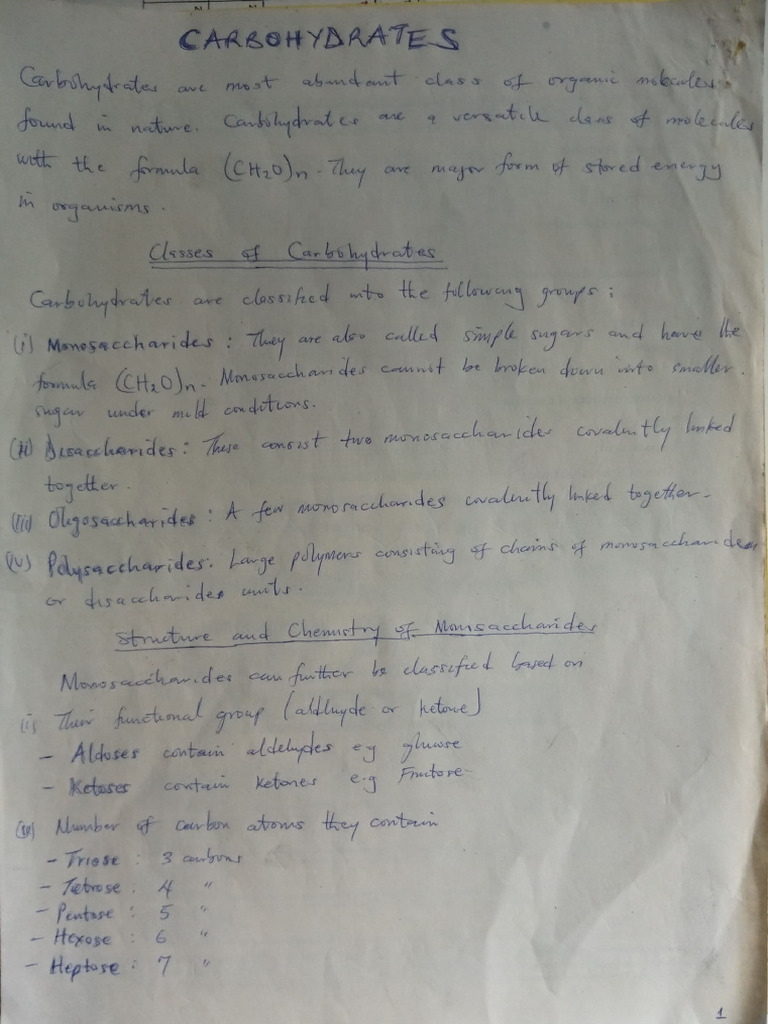 CARBOHYDRATES
Carbohydrates are most abundant class of organic molecules
found in nature. Carbohydrates are a versatile class of molecules
with the formula (CH₂O)n. They are major form of stored energy
in organisms.
Classes of Carbohydrates
Carbohydrates are classified into the following groups:
(i) Monosaccharides: They are also called simple sugars and have the
formula (CH₂O)n. Monosaccharides cannot be broken down into smaller
sugar under mild conditions.
(ii) Disaccharides: These consist two monosaccharides covalently linked
together.
(iii) Oligosaccharides: A few monosaccharides covalently linked together.
(iv) Polysaccharides: Large polymers consisting of chains of monosaccharides
or disaccharides units.
Structure and Chemistry of Monosaccharides
Monosaccharides can further be classified based on
(i) Their functional group (aldehyde or ketone)
- Aldoses contain aldehydes eg glucose
- Ketoses contain ketones e.g Fructose
(ii) Number of carbon atoms they contain
- Triose : 3 carbons
- Tetrose : 4 "
- Pentose : 5 "
- Hexose : 6 "
- Heptose : 7 "
1